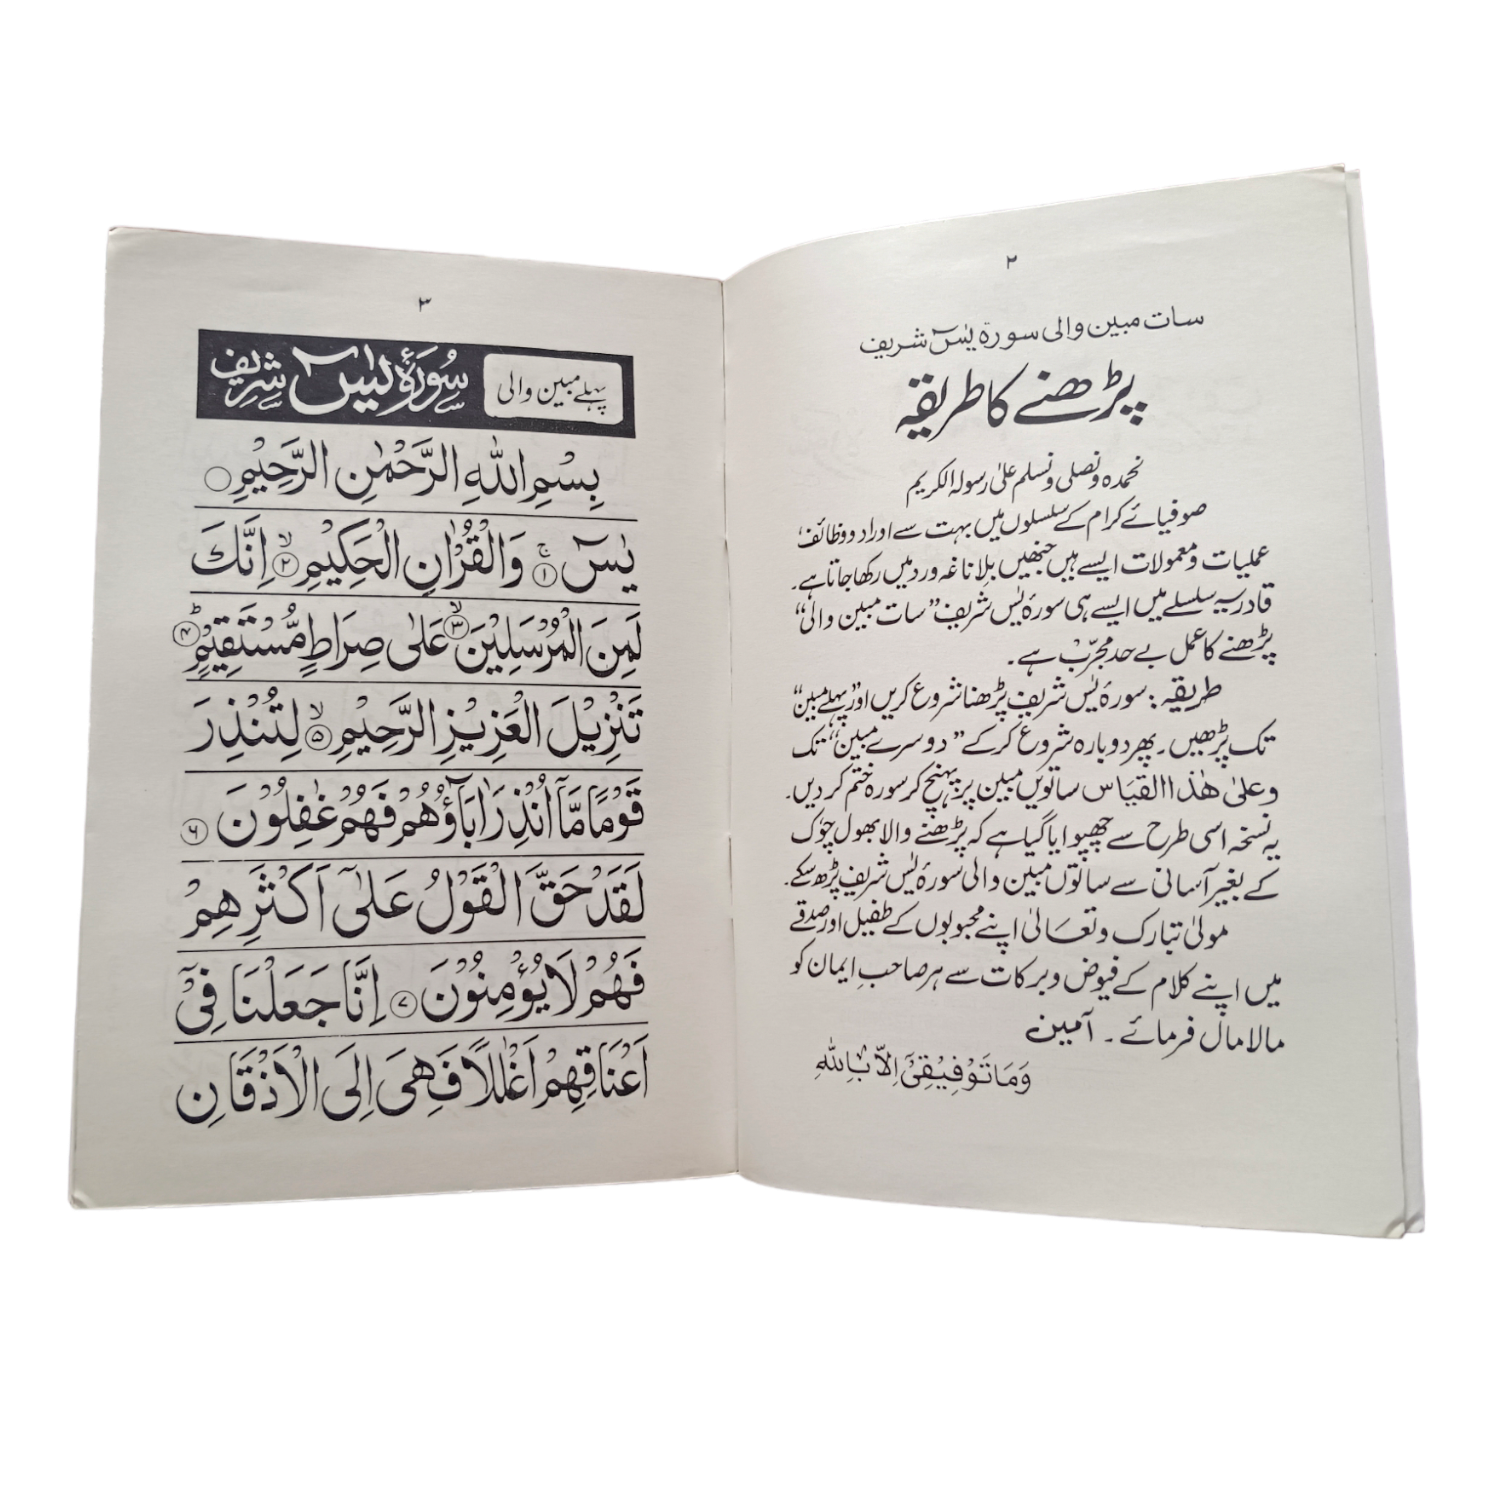 ۲
سات مبین والی سورۃ یٰسٓ شریف
پڑھنے کا طریقہ
نحمدہ و نصلی و نسلم علیٰ رسولہ الکریم
صوفیائے کرام کے سلسلوں میں بہت سے اوراد و وظائف،
عملیات و معمولات ایسے ہیں جنھیں بلا ناغہ ورد میں رکھا جاتا ہے۔
قادریہ سلسلے میں ایسے ہی سورۂ یٰس شریف ”سات مبین والی“
پڑھنے کا عمل بے حد مجرّب ہے۔
طریقہ: سورۂ یٰس شریف پڑھنا شروع کریں اور ”پہلے مبین“
تک پڑھیں۔ پھر دوبارہ شروع کرکے ”دوسرے مبین“ تک
وعلیٰ ھٰذا القیاس ساتویں مبین پر پہنچ کر سورہ ختم کردیں۔
یہ نسخہ اسی طرح سے چھپوایا گیا ہے کہ پڑھنے والا بھول چوک
کے بغیر آسانی سے ساتوں مبین والی سورۂ یٰس شریف پڑھ سکے۔
مولیٰ تبارک وتعالیٰ اپنے محبوبوں کے طفیل اور صدقے
میں اپنے کلام کے فیوض و برکات سے ہر صاحبِ ایمان کو
مالا مال فرمائے۔ آمین
وَمَا تَوْفِیْقِیْ اِلَّا بِاللہِ
۳
پہلے مبین والی
سُورَۂ یٰسٓ شریف
بِسْمِ اللّٰہِ الرَّحْمٰنِ الرَّحِیْمِ
یٰسٓ ۚ﴿۱﴾ وَالْقُرْاٰنِ الْحَکِیْمِ ۙ﴿۲﴾ اِنَّکَ
لَمِنَ الْمُرْسَلِیْنَ ۙ﴿۳﴾ عَلٰی صِرَاطٍ مُّسْتَقِیْمٍ ؕ﴿۴﴾
تَنْزِیْلَ الْعَزِیْزِ الرَّحِیْمِ ۙ﴿۵﴾ لِتُنْذِرَ
قَوْمًا مَّاۤ اُنْذِرَ اٰبَآؤُھُمْ فَھُمْ غٰفِلُوْنَ ﴿۶﴾
لَقَدْ حَقَّ الْقَوْلُ عَلٰۤی اَکْثَرِھِمْ
فَھُمْ لَا یُؤْمِنُوْنَ ﴿۷﴾ اِنَّا جَعَلْنَا فِیْۤ
اَعْنَاقِھِمْ اَغْلٰلًا فَھِیَ اِلَی الْاَذْقَانِ